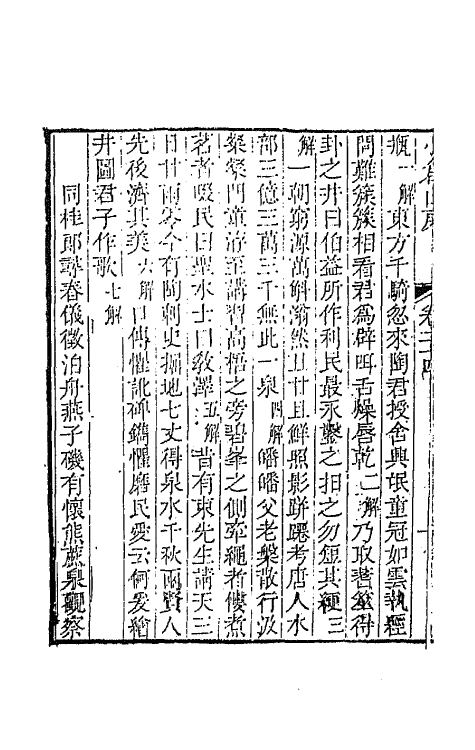 瓶一解東方千騎忽來陶君授舍興氓童冠如雲執經
問難簇簇相看君爲辟咡舌燥唇乾二解乃取蓍筮得
卦之井曰伯益所作利民最永鑿之抇之勿短其綆三
解一朝窮源萬斛滃然且甘且鮮照影跰䠥考唐人水
部三億三萬三千無此一泉四解皤皤父老槃散行汲
粲粲門童游至講習高梧之旁碧峯之側牽繩者僂煮
茗者啜民曰聖水士曰敎澤五解昔有東先生請天三
日甘雨零今有陶刺史掘地七丈得泉水千秋兩賢人
先後濟其美六解口傳懼訛碑鐫懼磨民愛云何爰繪
井圖君子作歌七解
同桂郎尋春儀徵泊舟燕子磯有懷熊蔗泉觀察